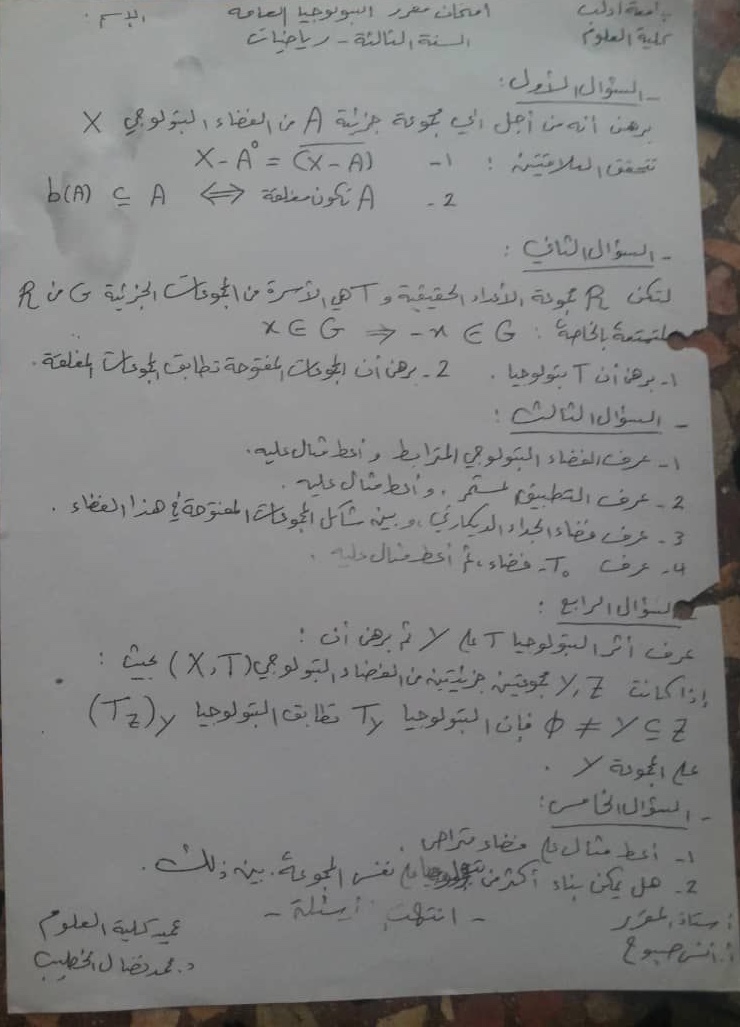 جامعة ادلب امتحان مقرر التبولوجيا العامة الاسم:
كلية العلوم السنة الثالثة - رياضيات
- السؤال الأول:
برهن أنه من أجل أي مجموعة جزئية A من الفضاء التبولوجي X
تتحقق العلاقتين: 1- X - A° = \overline{(X - A)}
2- A تكون مغلقة ⟺ b(A) ⊆ A
- السؤال الثاني:
لتكن R مجموعة الأعداد الحقيقية و T هي الأسرة من المجموعات الجزئية G من R
المتمتعة بالخاصة: x ∈ G ⇒ -x ∈ G
1- برهن أن T تبولوجيا. 2- برهن أن المجموعات المفتوحة تطابق المجموعات المغلقة.
- السؤال الثالث:
1- عرف الفضاء التبولوجي المترابط وأعط مثال عليه.
2- عرف التطبيق المستمر، وأعط مثال عليه.
3- عرف فضاء الجداء الديكارتي، وبين شكل المجموعات المفتوحة في هذا الفضاء.
4- عرف T₀- فضاء، ثم أعط مثال عليه.
السؤال الرابع:
عرف أثر التبولوجيا T على Y ثم برهن أن:
إذا كانت Y, Z مجموعتين جزئيتين من الفضاء التبولوجي (X, T) بحيث:
ϕ ≠ Y ⊆ Z فإن التبولوجيا T_Y تطابق التبولوجيا (T_Z)_Y
على المجموعة Y.
- السؤال الخامس:
1- أعط مثال على فضاء متراص.
2- هل يمكن بناء أكثر من تبولوجيا على نفس المجموعة. بين ذلك.
- انتهت أسئلة -
أستاذ المقرر عميد كلية العلوم
أ. أنس جبوع د. محمد نضال الخطيب